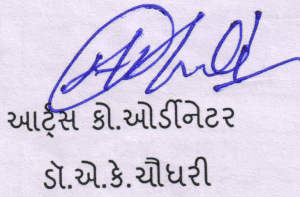 આર્ટ્સ કો.ઓર્ડીનેટર
ડૉ.એ.કે.ચૌધરી